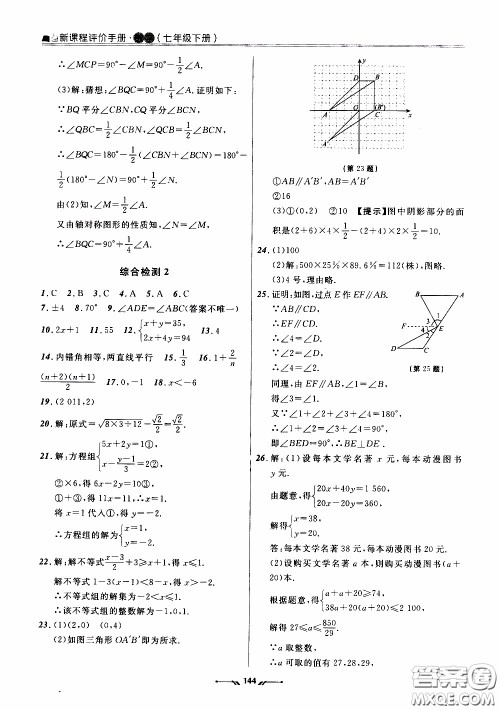 新课程评价手册·数学(七年级下册)
∴∠MCP=90°-∠M=90°-1/2∠A.
(3)解:猜想:∠BQC=90°+1/4∠A. 证明如下:
∵BQ平分∠CBN,CQ平分∠BCN,
∴∠QBC=1/2∠CBN,∠QCB=1/2∠BCN,
∴∠BQC=180°-1/2(∠CBN+∠BCN)=180°-
1/2(180°-∠N)=90°+1/2∠N.
由(2)知,∠M=1/2∠A.
又由轴对称图形的性质知,∠M=∠N,
∴∠BQC=90°+1/4∠A.
综合检测2
1.C 2.B 3.D 4.A 5.A 6.C
7.±4 8.70° 9.∠ADE=∠ABC(答案不唯一)
10.2x+1 11.55 12.{x+y=35, 2x+4y=94 13.4
14.内错角相等,两直线平行 15.1/3 16.1+2/n
(n+2)(n+1)/2 17.0,-1 18.x<-6
19.(2 011,2)
20.解:原式=√(8×3+12)-√2/2=√2/2.
21.解:方程组{5x+2y=1①, x-(y-1)/3=2②,
②×6,得6x-2y=10③,
①+③,得11x=11,x=1.
将x=1代入①,得y=-2.
∴方程组的解为{x=1, y=-2.
22.解:解不等式(x-3)/2+3≥x+1,得x≤1.
解不等式1-3(x-1)<8-x,得x>-2.
∴不等式组的解集为-2<x≤1.
∴该不等式组的整数解为-1,0,1.
23.(1)(2,0) (0,4)
(2)如图三角形OA′B′即为所求.
y
D B
A O (B′) C x
A′
(第23题)
①AB∥A′B′,AB=A′B′
②16
(3)①(0,2) ②10 【提示】图中阴影部分的面
积是(2+6)×4×1/2-(2+4)×2×1/2=10.
24.(1)100
(2)解:500×25%×89.6%=112(株),图略.
(3)4号,理由略.
25.证明:如图,过点E作EF∥AB.
∵AB∥CD,
∴EF∥CD.
∴∠4=∠D.
∵∠2=∠D,
∴∠4=∠2.
A B
F 3 1 E
4 2
C D
(第25题)
同理,由EF∥AB,∠1=∠B,
得∠3=∠1.
又∵∠1+∠2+∠3+∠4=180°,
∴∠1+∠2=∠3+∠4=90°,
即∠BED=90°,∴BE⊥DE.
26.解:(1)设每本文学名著x元,每本动漫图书
y元.
由题意,得{20x+40y=1 560, 20x-20y=360,
解得{x=38, y=20.
答:每本文学名著38元,每本动漫图书20元.
(2)设购买文学名著a本,则购买动漫图书(a+
20)本.
根据题意,得{a+a+20≥74, 38a+20(a+20)≤2 100,
解得27≤a≤850/29.
∵a取整数,
∴a可取的值有27,28,29,
144